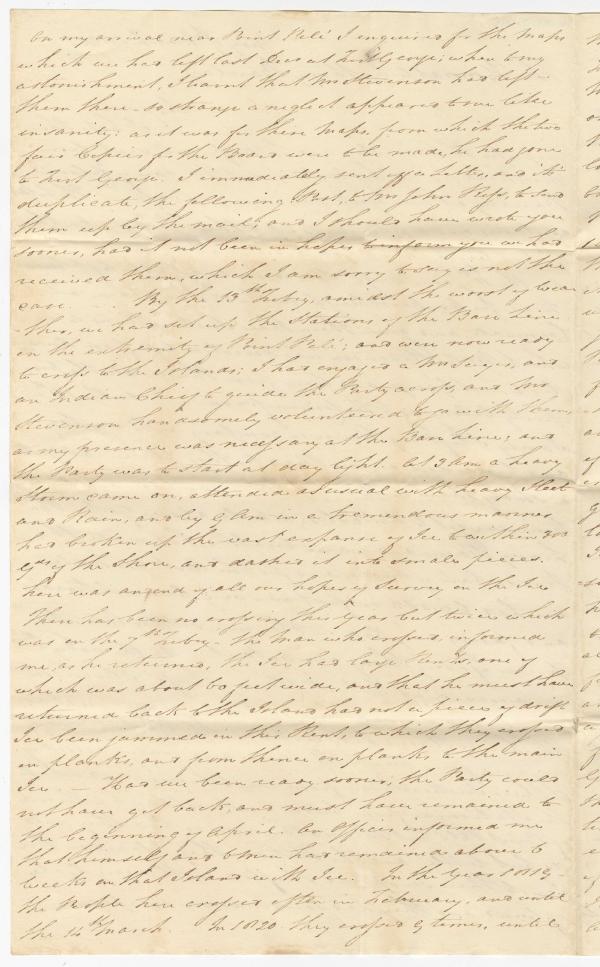 On my arrival near Point Pelé I enquired for the Maps
which we had left last Decr at Fort George; when to my
astonishment, I learnt that Mr Stevenson had left
them there – so strange a neglect appeared to me like
insanity: as it was for these Maps, from which the two
fair Copies for the Board were to be made, he had gone
to Fort George. I immediately sent off a Letter, and its
duplicate, the following Post, to Mr John to send
them up by the mail; and I should have wrote you
sooner, had it not been in hopes to inform you we had
received them, which I am sorry to say is not the
case. By the 13th Feby, amidst the worst of wea
-ther, we had set up the Stations of the Base Line
on the extremity of Point Pelé; and were now ready
to cross to the Islands; I had engaged a Mr and
an Indian Chief to guide the Party across, and Mr
Stevenson handsomely volunteered to go with them,
as my presence was necessary at the Base Line; and
the Party was to start at day light. At 3 AM a heavy
Storm came on, attended as usual with heavy Sleet
and Rain, and by 9 AM in a tremendous manner
had broken up the vast expanse of Ice to within 300
Yds of the Shore, and dashed it into small pieces.
here was an end of all our hopes of Survey on the Ice
There has been no crossing this Year but twice which
was on the 7th Feby – the man who crossed informed
me, as he returned, the Ice had large Rents, one of
which was about 60 feet wide, and that he must have
returned back to the Island had not a piece of drift
Ice been jammed in this Rent, to which they crossed
on planks, and from thence on planks to the main
Ice. – Had we been ready sooner, the Party could
not have got back, and must have remained to
the beginning of April. An Officer informed me
that himself and 6 men had remained above 6
weeks on that Island with Ice. In the Year 1819
the People here crossed often in February, and until
the 14th March. In 1820 they crossed 9 times, until